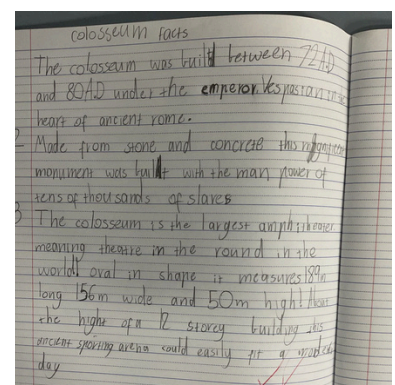 colosseum facts
The colosseum was build between 72AD
and 80AD under the emperor Vespasian in the
heart of ancient rome.
2 Made from stone and concrete this magnificent
monument was built with the man power of
tens of thousands of slaves
3 The colosseum is the largest amphitheater
meaning theatre in the round in the
world! oval in shape it measures 189m
long 156m wide and 50m high!
the hight of a 12 storey building this
ancient sporting arena could easily fit a modern
day